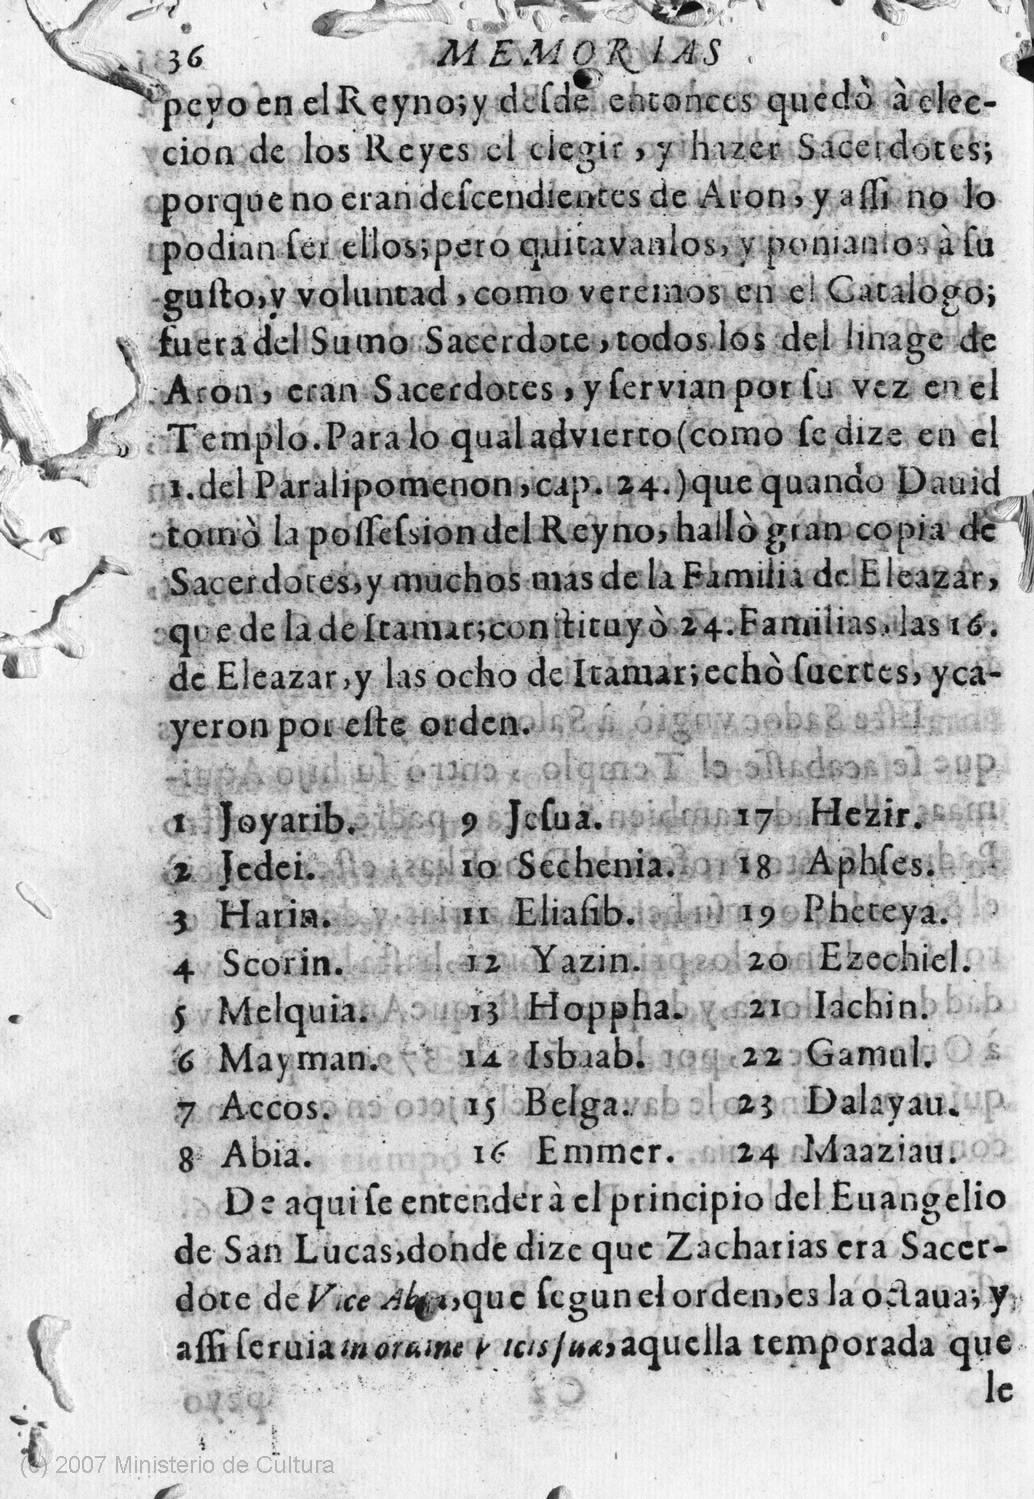 36 MEMORIAS
peyo en el Reyno; y desde entonces quedò à elec-
cion de los Reyes el elegir, y hazer Sacerdotes;
porque no eran descendientes de Aron, y assi no lo
podian ser ellos; pero quitavanlos, y ponianlos à su
gusto, y voluntad, como veremos en el Catalogo;
fuera del Sumo Sacerdote, todos los del linage de
Aron, eran Sacerdotes, y servian por su vez en el
Templo. Para lo qual advierto (como se dize en el
1. del Paralipomenon, cap. 24.) que quando Dauid
tomò la possession del Reyno, hallò gran copia de
Sacerdotes, y muchos mas de la Familia de Eleazar,
que de la de Itamar; constituyò 24. Familias, las 16.
de Eleazar, y las ocho de Itamar; echò suertes, y ca-
yeron por este orden.
1 Joyarib. 9 Jesua. 17 Hezir.
2 Jedei. 10 Sechenia. 18 Aphses.
3 Harin. 11 Eliasib. 19 Pheteya.
4 Scorin. 12 Yazin. 20 Ezechiel.
5 Melquia. 13 Hoppha. 21 Iachin.
6 Mayman. 14 Isbaab. 22 Gamul.
7 Accos. 15 Belga. 23 Dalayau.
8 Abia. 16 Emmer. 24 Maaziau.
De aqui se entenderà el principio del Euangelio
de San Lucas, donde dize que Zacharias era Sacer-
dote de Vice Abia, que segun el orden, es la octaua; y
assi seruia in ordine vicis suæ, aquella temporada que
le
(c) 2007 Ministerio de Cultura